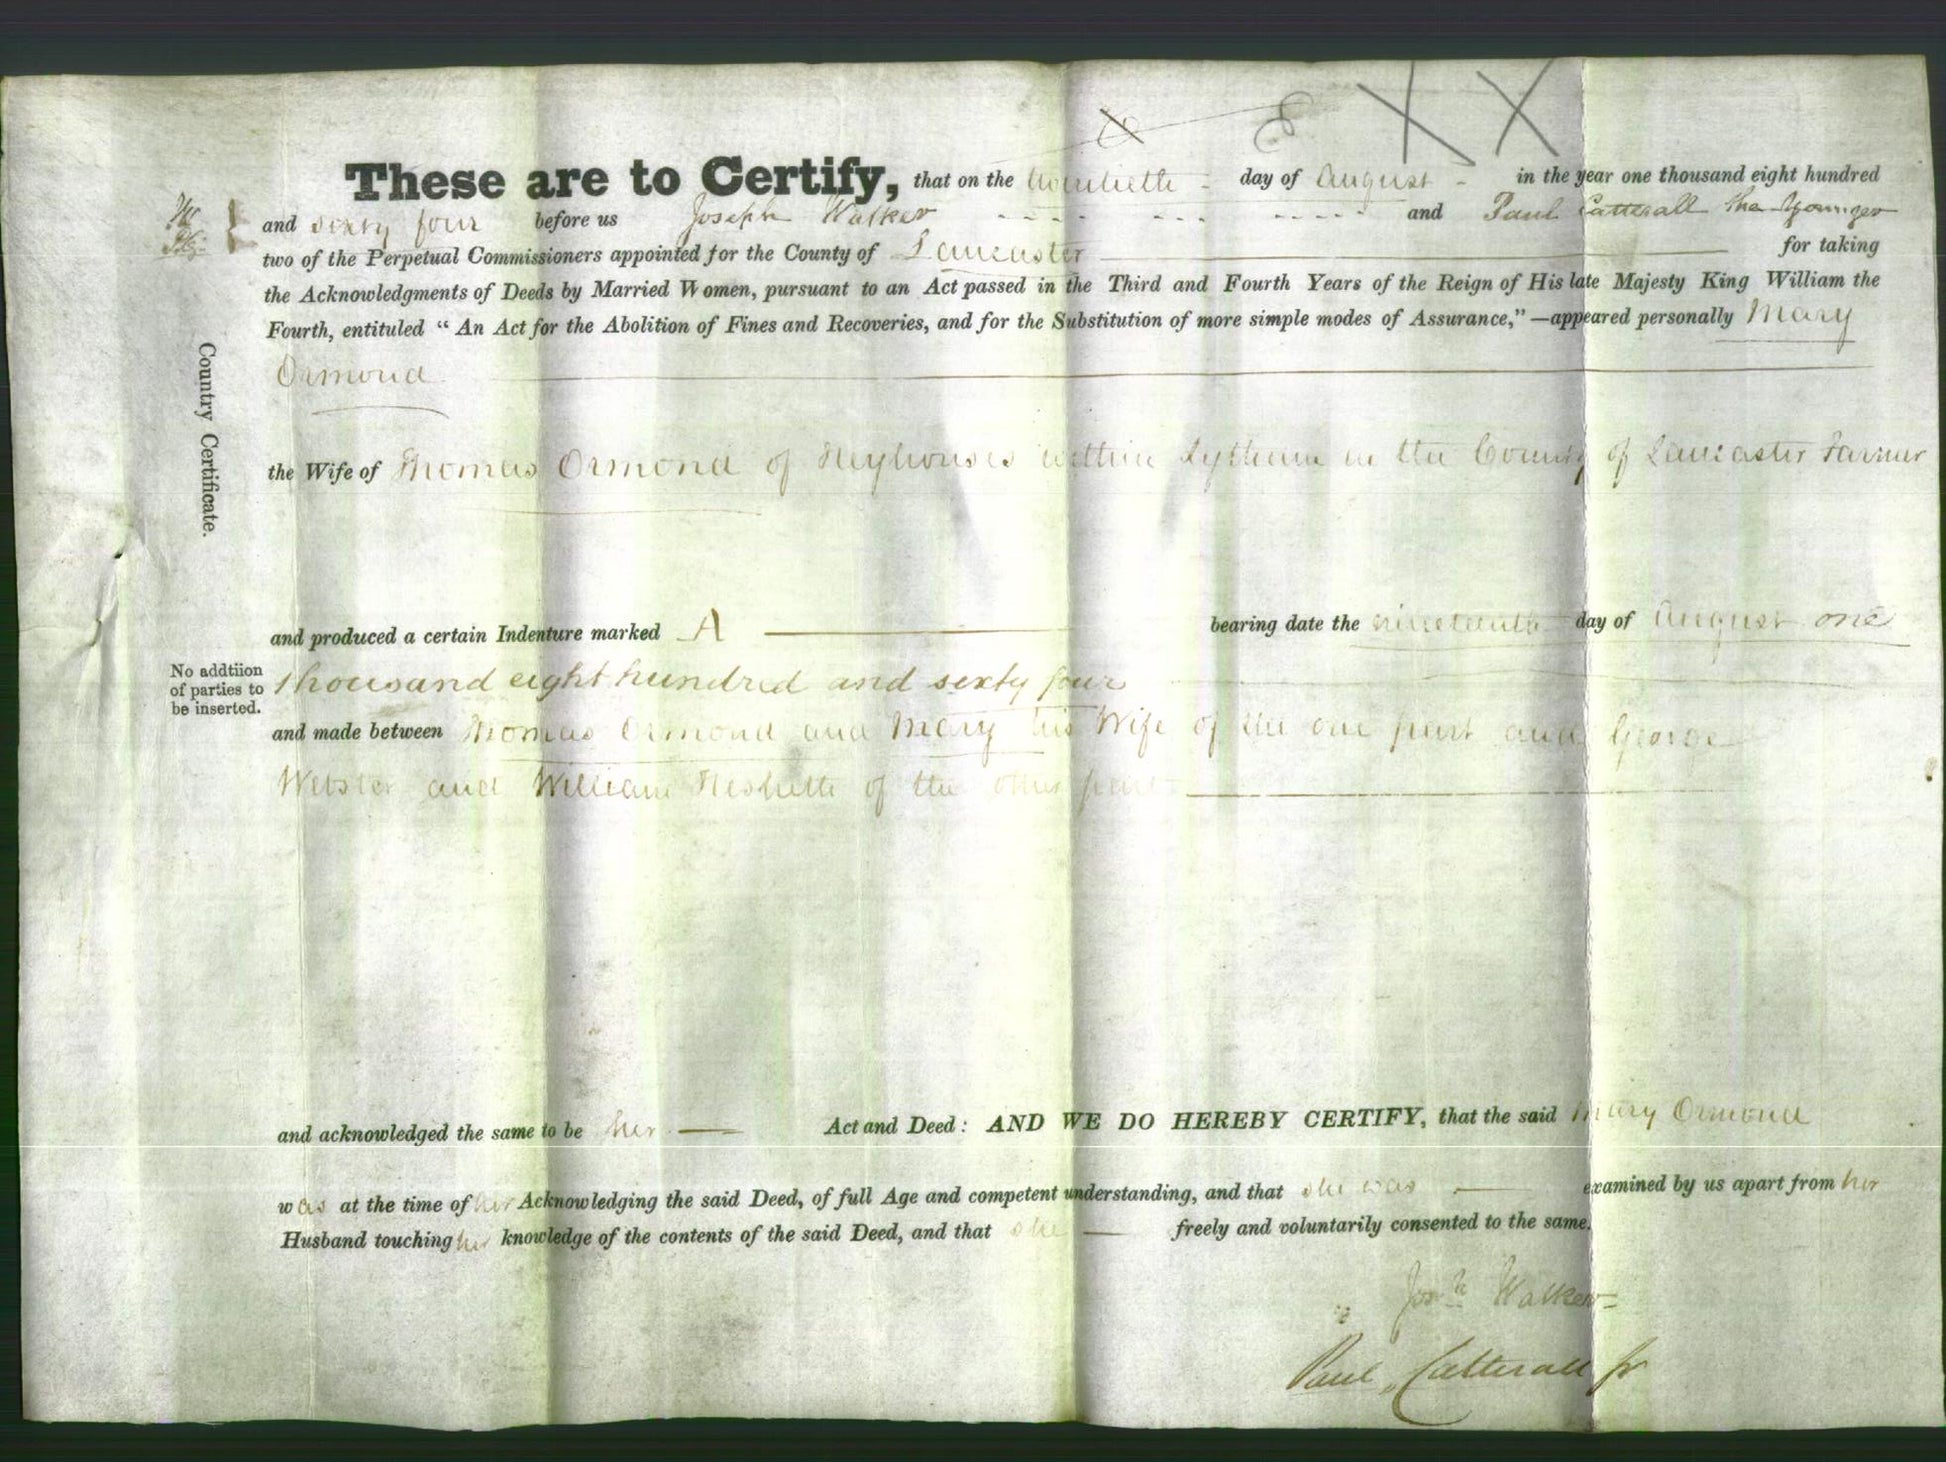 These are to Certify, that on the day of August in the year one thousand eight hundred
and sixty four before us Joseph Walker and Paul Catterall the Younger
two of the Perpetual Commissioners appointed for the County of Lancaster for taking
the Acknowledgments of Deeds by Married Women, pursuant to an Act passed in the Third and Fourth Years of the Reign of His late Majesty King William the
Fourth, entituled "An Act for the Abolition of Fines and Recoveries, and for the Substitution of more simple modes of Assurance,"—appeared personally Mary
Ormond
Country Certificate.
the Wife of Thomas Ormond of Heyhouses within Lytham in the County of Lancaster Farmer
and produced a certain Indenture marked A bearing date the nineteenth day of August one
No addtiion
of parties to
be inserted.
thousand eight hundred and sixty four
and made between Thomas Ormond and Mary his Wife of the one part and George
and William of the other part
and acknowledged the same to be her Act and Deed: AND WE DO HEREBY CERTIFY, that the said Mary Ormond
was at the time of her Acknowledging the said Deed, of full Age and competent understanding, and that she was examined by us apart from her
Husband touching her knowledge of the contents of the said Deed, and that she freely and voluntarily consented to the same.
Josh Walker
Paul Catterall Jr